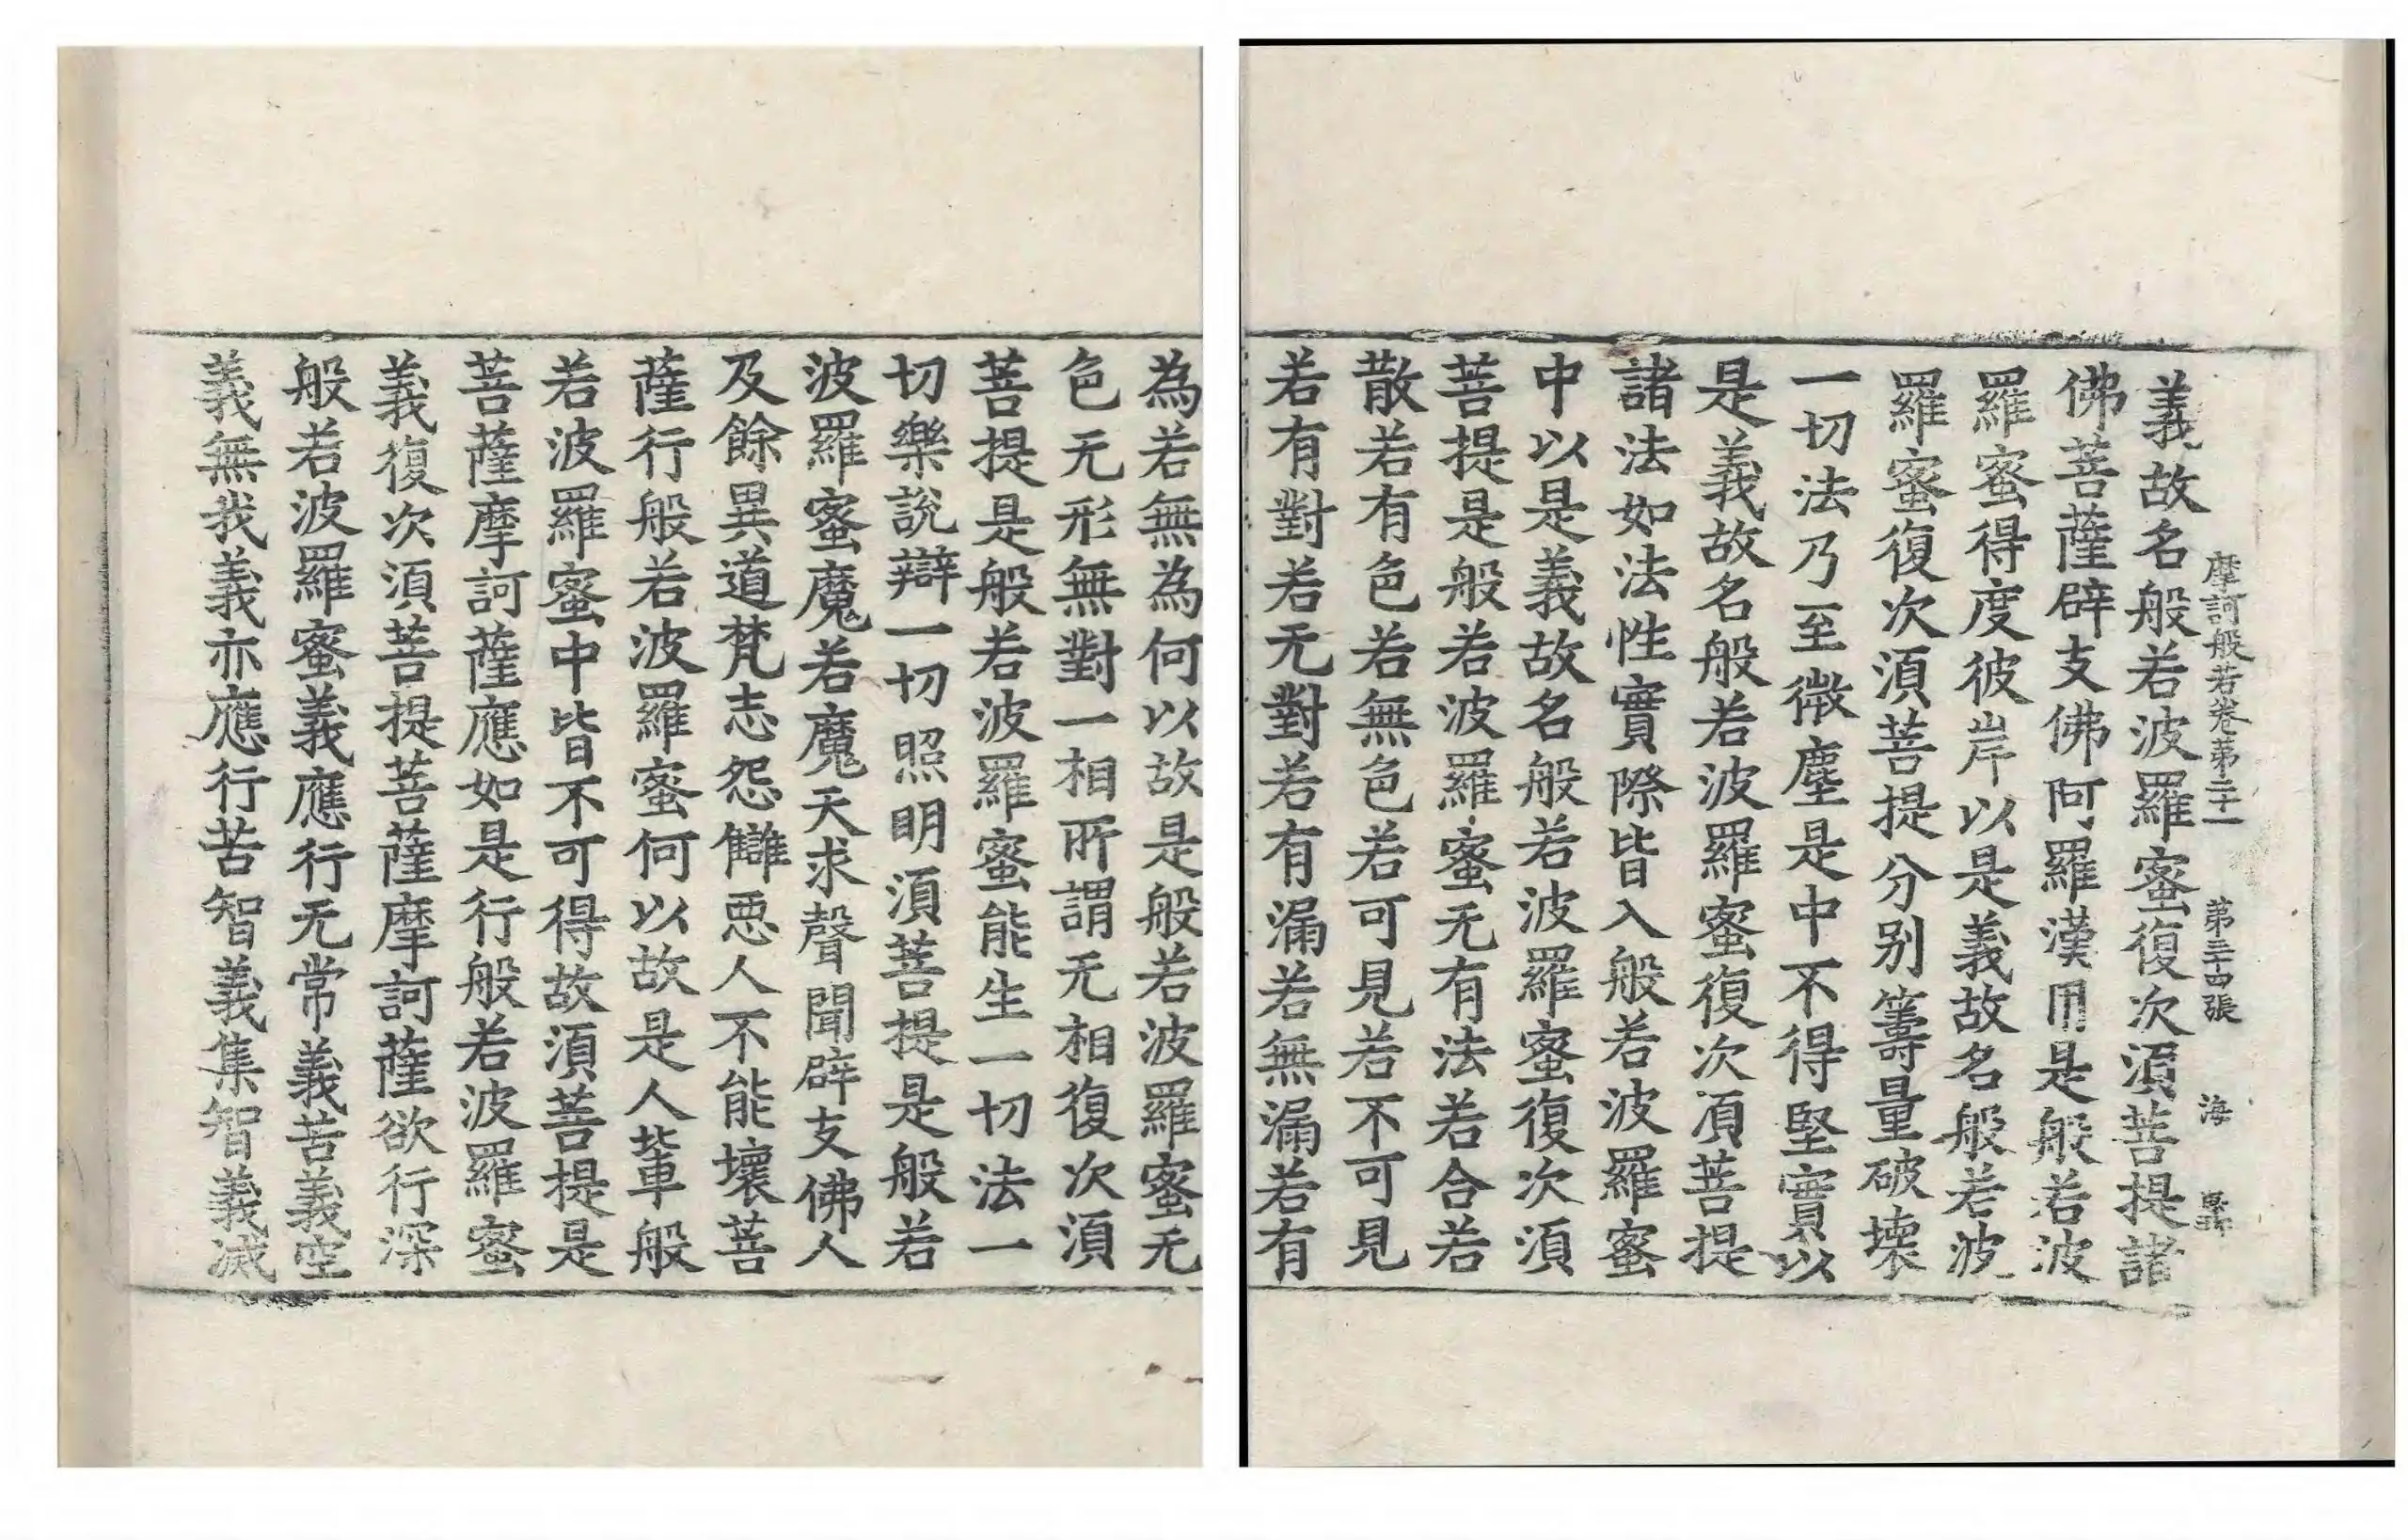 摩訶般若卷第二十一 第三十四張 海
義故名般若波羅蜜復次湏菩提諸
佛菩薩辟支佛阿羅漢用是般若波
羅蜜得度彼岸以是義故名般若波
羅蜜復次湏菩提分别籌量破壊
一切法乃至微塵是中不得堅實以
是義故名般若波羅蜜復次湏菩提
諸法如法性實際皆入般若波羅蜜
中以是義故名般若波羅蜜復次湏
菩提是般若波羅蜜无有法若合若
散若有色若無色若可見若不可見
若有對若无對若有漏若無漏若有
為若無為何以故是般若波羅蜜无
色无形無對一相所謂无相復次湏
菩提是般若波羅蜜能生一切法一
切樂說辯一切照明湏菩提是般若
波羅蜜魔若魔天求聲聞辟支佛人
及餘異道梵志怨讎惡人不能壞菩
薩行般若波羅蜜何以故是人輩般
若波羅蜜中皆不可得故湏菩提是
菩薩摩訶薩應如是行般若波羅蜜
義復次湏菩提菩薩摩訶薩欲行深
般若波羅蜜義應行无常義苦義空
義無我義亦應行苦智義集智義滅